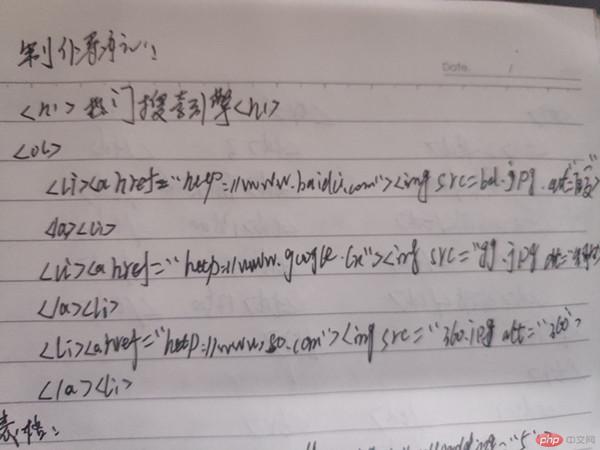 制作导航:
Date: /
<h1>热门搜索引擎<h1>
<ol>
<li><a href="http://www.baidu.com"><img src=bd.jpg alt="百度">
</a><li>
<li><a href="http://www.google.cn"><img src="gg.jpg alt="
</a><li>
<li><a href="http://www.so.com"><img src="360.jpg alt="360">
</a><li>
表格:
="5"
php 中文网